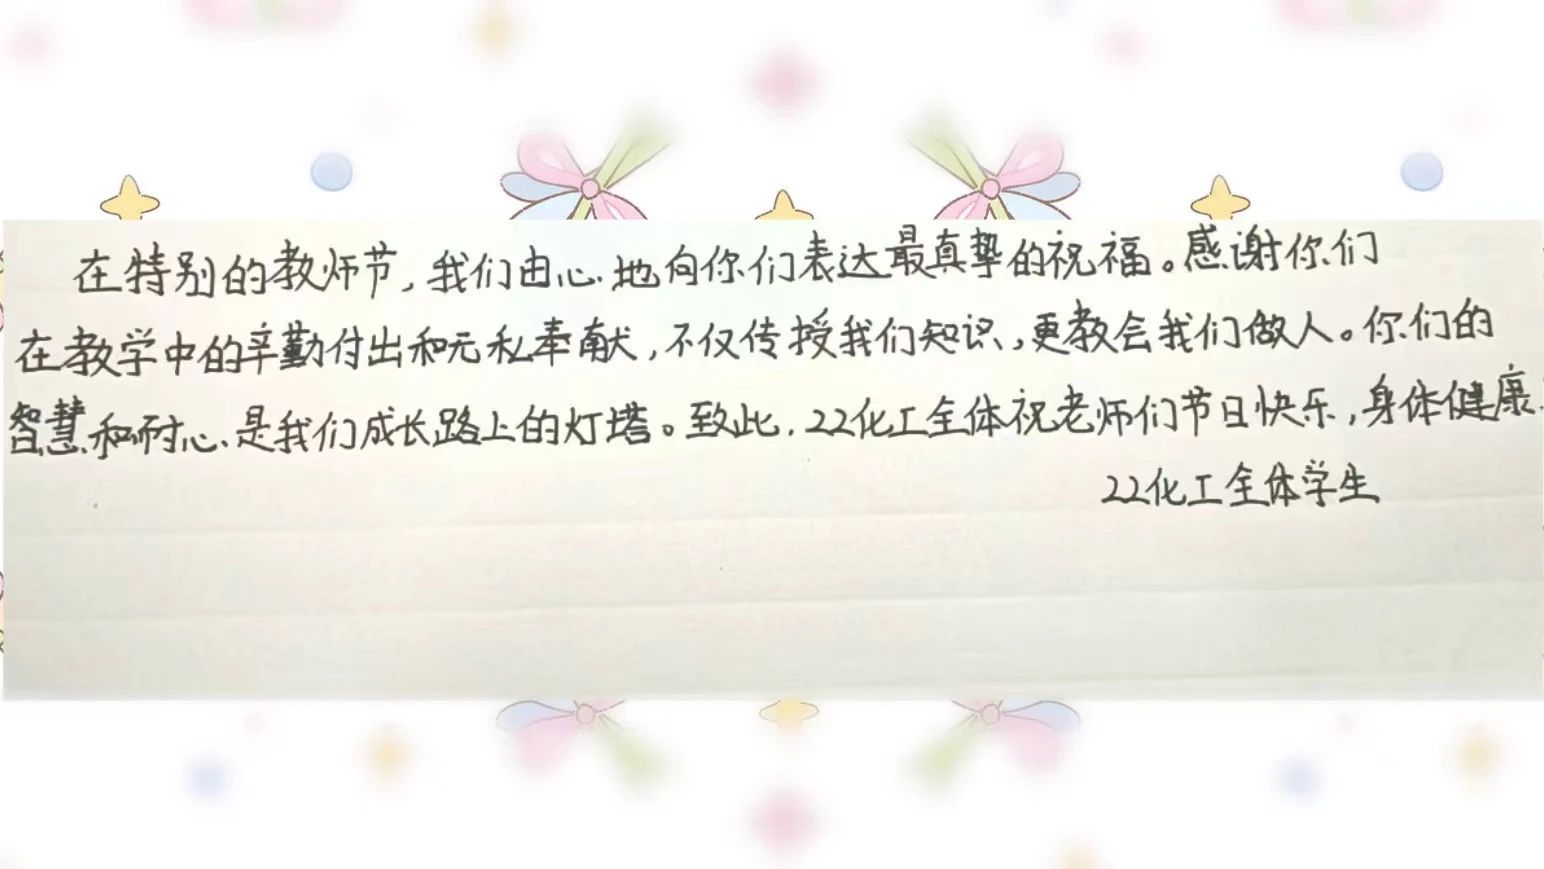 在特别的教师节,我们由心地向你们表达最真挚的祝福。感谢你们
在教学中的辛勤付出和无私奉献,不仅传授我们知识,更教会我们做人。你们的
智慧和耐心是我们成长路上的灯塔。致此,22化工全体祝老师们节日快乐,身体健康
22化工全体学生